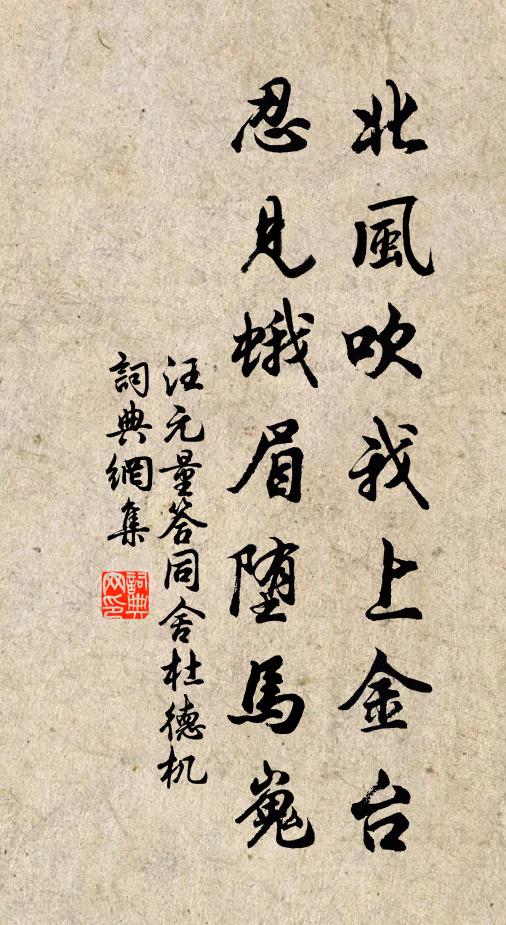 北風吹我上金台
忍見蛾眉墮馬嵬
汪元量答同舍杜德机
詞典網集
詞典網印